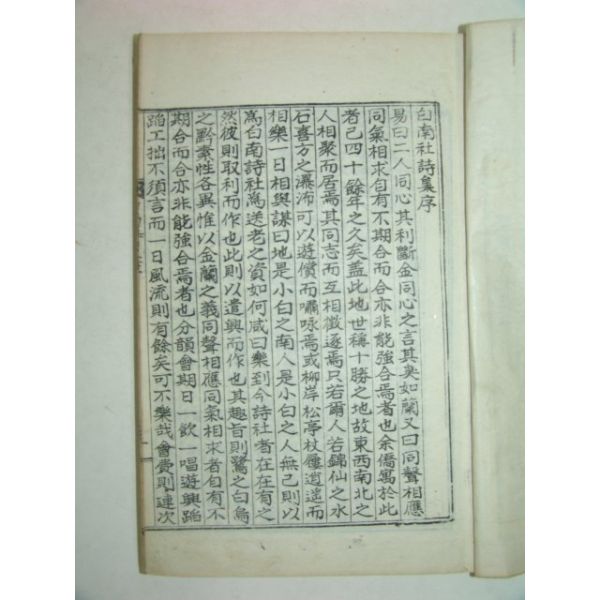 白南社詩集序
易曰二人同心其利斷金同心之言其臭如蘭又曰同聲相應
同氣相求自有不期合而合亦非能強合焉者也余僑寓於此
者已四十餘年之久矣蓋此地世稱十勝之地故東西南北之
人相聚而居焉其同志而互相徵逐焉只若爾人若錦仙之水
石喜方之瀑沛可以遊償而嘯咏焉或柳岸松亭杖屨逍遙而
相樂一日相與謀曰地是小白之南人是小白之人無己則以
爲白南詩社爲送老之資如何咸曰樂到今詩社者在在有之
然彼則取利而作也此則以遣興而作也其趣旨則鷺之白烏
之黔素性各異惟以金蘭之義同聲相應同氣相求者自有不
期合而合亦非能強合焉者也分韻會期日一飮一唱遊興蹈
蹈工拙不須言而一日風流則有餘矣可不樂哉會費則連次